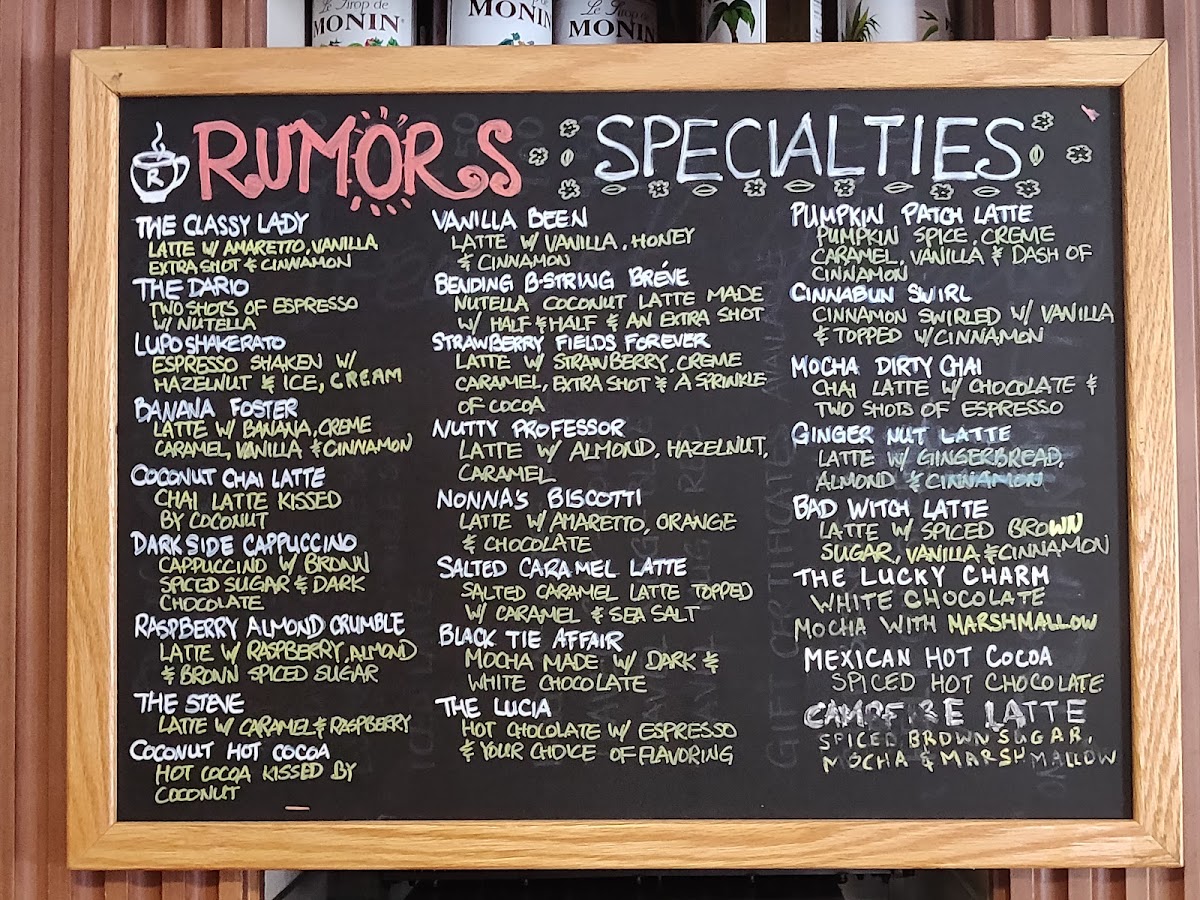 Le Sirop de
MONIN
MONIN
Le Sirop de
MONIN
R
RUMORS SPECIALTIES
THE CLASSY LADY
LATTE W/ AMARETTO, VANILLA
EXTRA SHOT & CINNAMON
THE DARIO
TWO SHOTS OF ESPRESSO
W/ NUTELLA
LUPO SHAKERATO
ESPRESSO SHAKEN W/
HAZELNUT & ICE, CREAM
BANANA FOSTER
LATTE W/ BANANA, CREME
CARAMEL, VANILLA & CINNAMON
COCONUT CHAI LATTE
CHAI LATTE KISSED
BY COCONUT
DARKSIDE CAPPUCCINO
CAPPUCCINO W/ BROWN
SPICED SUGAR & DARK
CHOCOLATE
RASPBERRY ALMOND CRUMBLE
LATTE W/ RASPBERRY, ALMOND
& BROWN SPICED SUGAR
THE STEVE
LATTE W/ CARAMEL & RASPBERRY
COCONUT HOT COCOA
HOT COCOA KISSED BY
COCONUT
VANILLA BEEN
LATTE W/ VANILLA, HONEY
& CINNAMON
BENDING B-STRING BRÉVE
NUTELLA COCONUT LATTE MADE
W/ HALF & HALF & AN EXTRA SHOT
STRAWBERRY FIELDS FOREVER
LATTE W/ STRAWBERRY, CREME
CARAMEL, EXTRA SHOT & A SPRINKLE
OF COCOA
NUTTY PROFESSOR
LATTE W/ ALMOND, HAZELNUT,
CARAMEL
NONNA'S BISCOTTI
LATTE W/ AMARETTO, ORANGE
& CHOCOLATE
SALTED CARAMEL LATTE
SALTED CARAMEL LATTE TOPPED
W/ CARAMEL & SEA SALT
BLACK TIE AFFAIR
MOCHA MADE W/ DARK &
WHITE CHOCOLATE
THE LUCIA
HOT CHOCOLATE W/ ESPRESSO
& YOUR CHOICE OF FLAVORING
PUMPKIN PATCH LATTE
PUMPKIN SPICE, CREME
CARAMEL, VANILLA & DASH OF
CINNAMON
CINNABUN SWIRL
CINNAMON SWIRLED W/ VANILLA
& TOPPED W/ CINNAMON
MOCHA DIRTY CHAI
CHAI LATTE W/ CHOCOLATE &
TWO SHOTS OF ESPRESSO
GINGER NUT LATTE
LATTE W/ GINGERBREAD,
ALMOND & CINNAMON
BAD WITCH LATTE
LATTE W/ SPICED BROWN
SUGAR, VANILLA & CINNAMON
THE LUCKY CHARM
WHITE CHOCOLATE
MOCHA WITH MARSHMALLOW
MEXICAN HOT COCOA
SPICED HOT CHOCOLATE
CAMPFIRE LATTE
SPICED BROWN SUGAR,
MOCHA & MARSHMALLOW